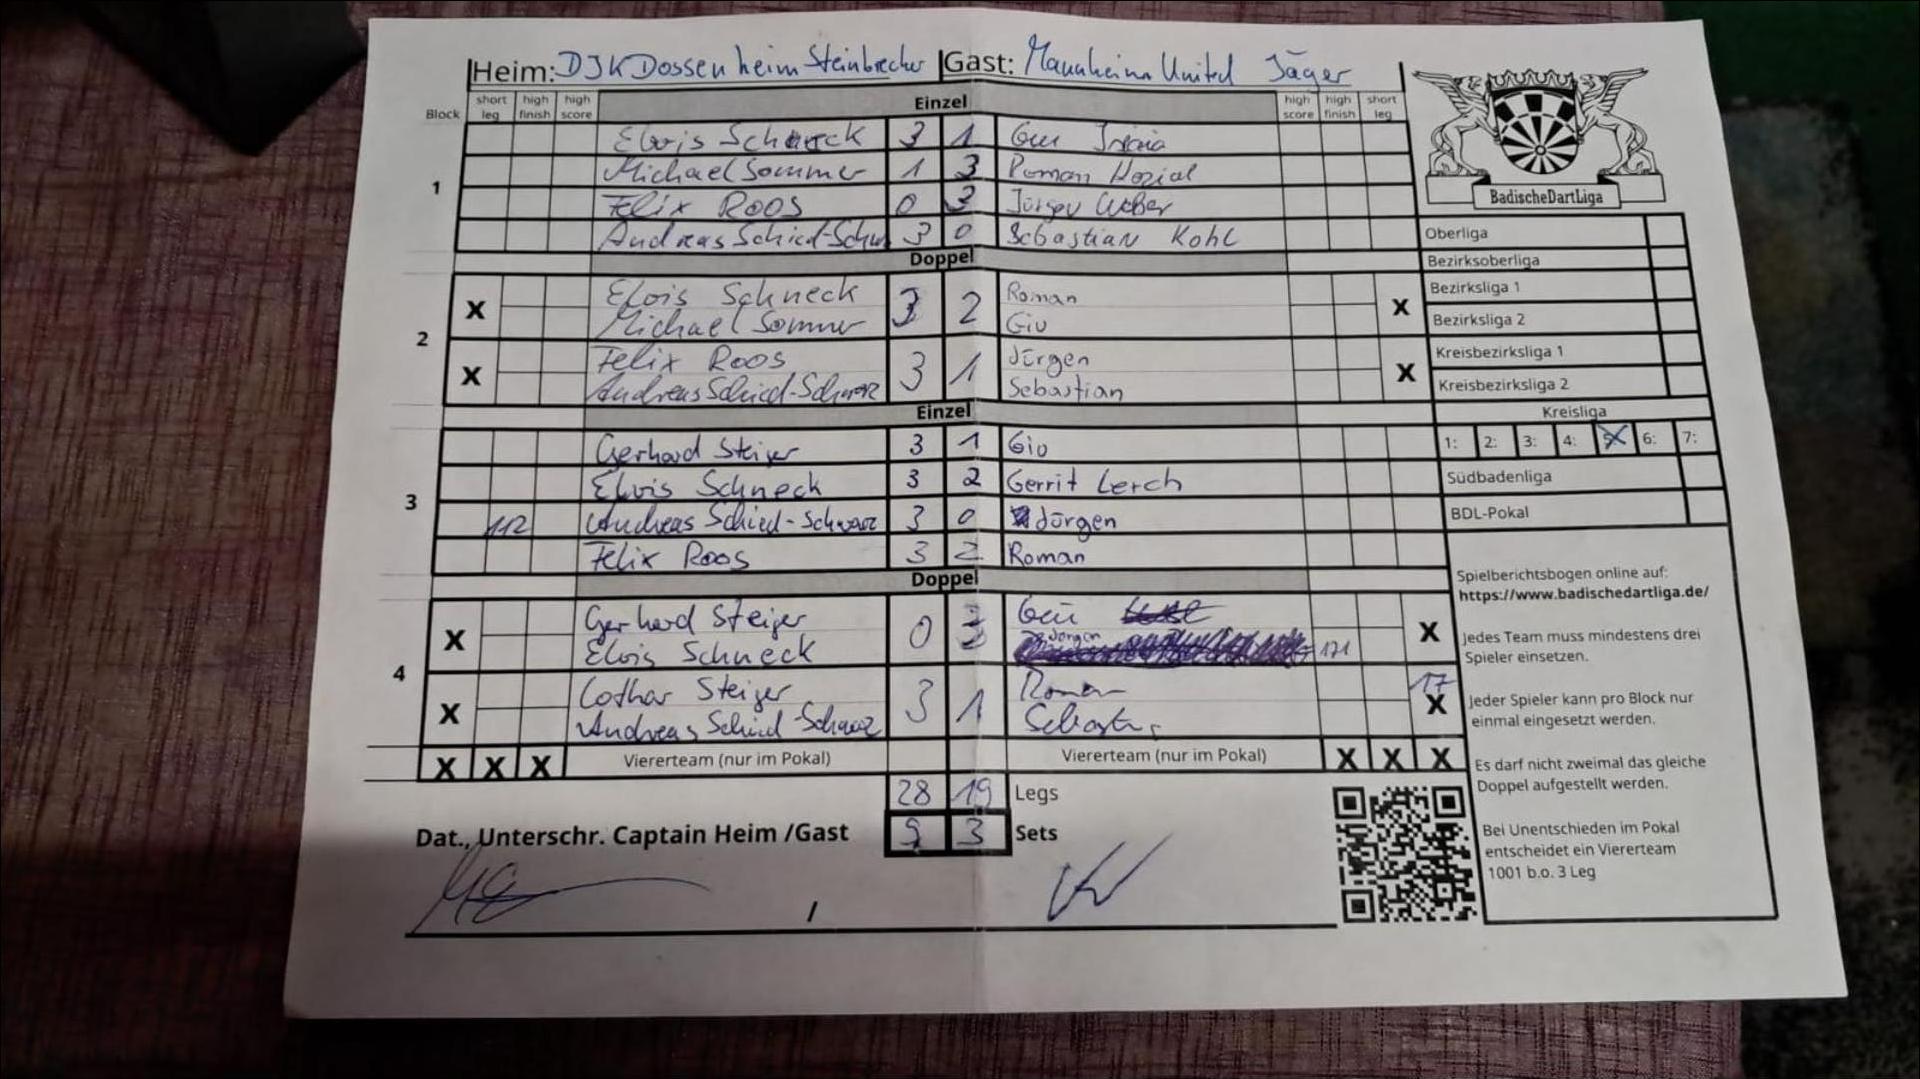 Heim: DJK Dossenheim Steinbrecher Gast: Mannheim United Jäger
Block short leg high finish high score Einzel high score high finish short leg
1
Elvis Schneck 3 1
Michael Sommer 1 3 Roman
Felix Roos 0 3 Jürgen Weber
Andreas Schied-Schw 3 0 Sebastian Kohl
Doppel
2
X Elvis Schneck 3 2 Roman X
Michael Sommer Gio
X Felix Roos 3 1 Jürgen X
Andreas Schied-Schwarz Sebastian
Einzel
3
Gerhard Steiger 3 1 Gio
Elvis Schneck 3 2 Gerrit Lerch
112 Andreas Schied-Schwarz 3 0 Jürgen
Felix Roos 3 2 Roman
Doppel
4
X Gerhard Steiger 0 3 X
Elvis Schneck Jürgen 171
X Lothar Steiger 3 1 Roman 17 X
Andreas Schied-Schwarz
X X X Viererteam (nur im Pokal) Viererteam (nur im Pokal) X X X
28 19 Legs
Dat., Unterschr. Captain Heim /Gast 9 3 Sets
/
BadischeDartLiga
Oberliga
Bezirksoberliga
Bezirksliga 1
Bezirksliga 2
Kreisbezirksliga 1
Kreisbezirksliga 2
Kreisliga
1: 2: 3: 4: 5 X 6: 7:
Südbadenliga
BDL-Pokal
Spielberichtsbogen online auf:
https://www.badischedartliga.de/
Jedes Team muss mindestens drei
Spieler einsetzen.
Jeder Spieler kann pro Block nur
einmal eingesetzt werden.
Es darf nicht zweimal das gleiche
Doppel aufgestellt werden.
Bei Unentschieden im Pokal
entscheidet ein Viererteam
1001 b.o. 3 Leg